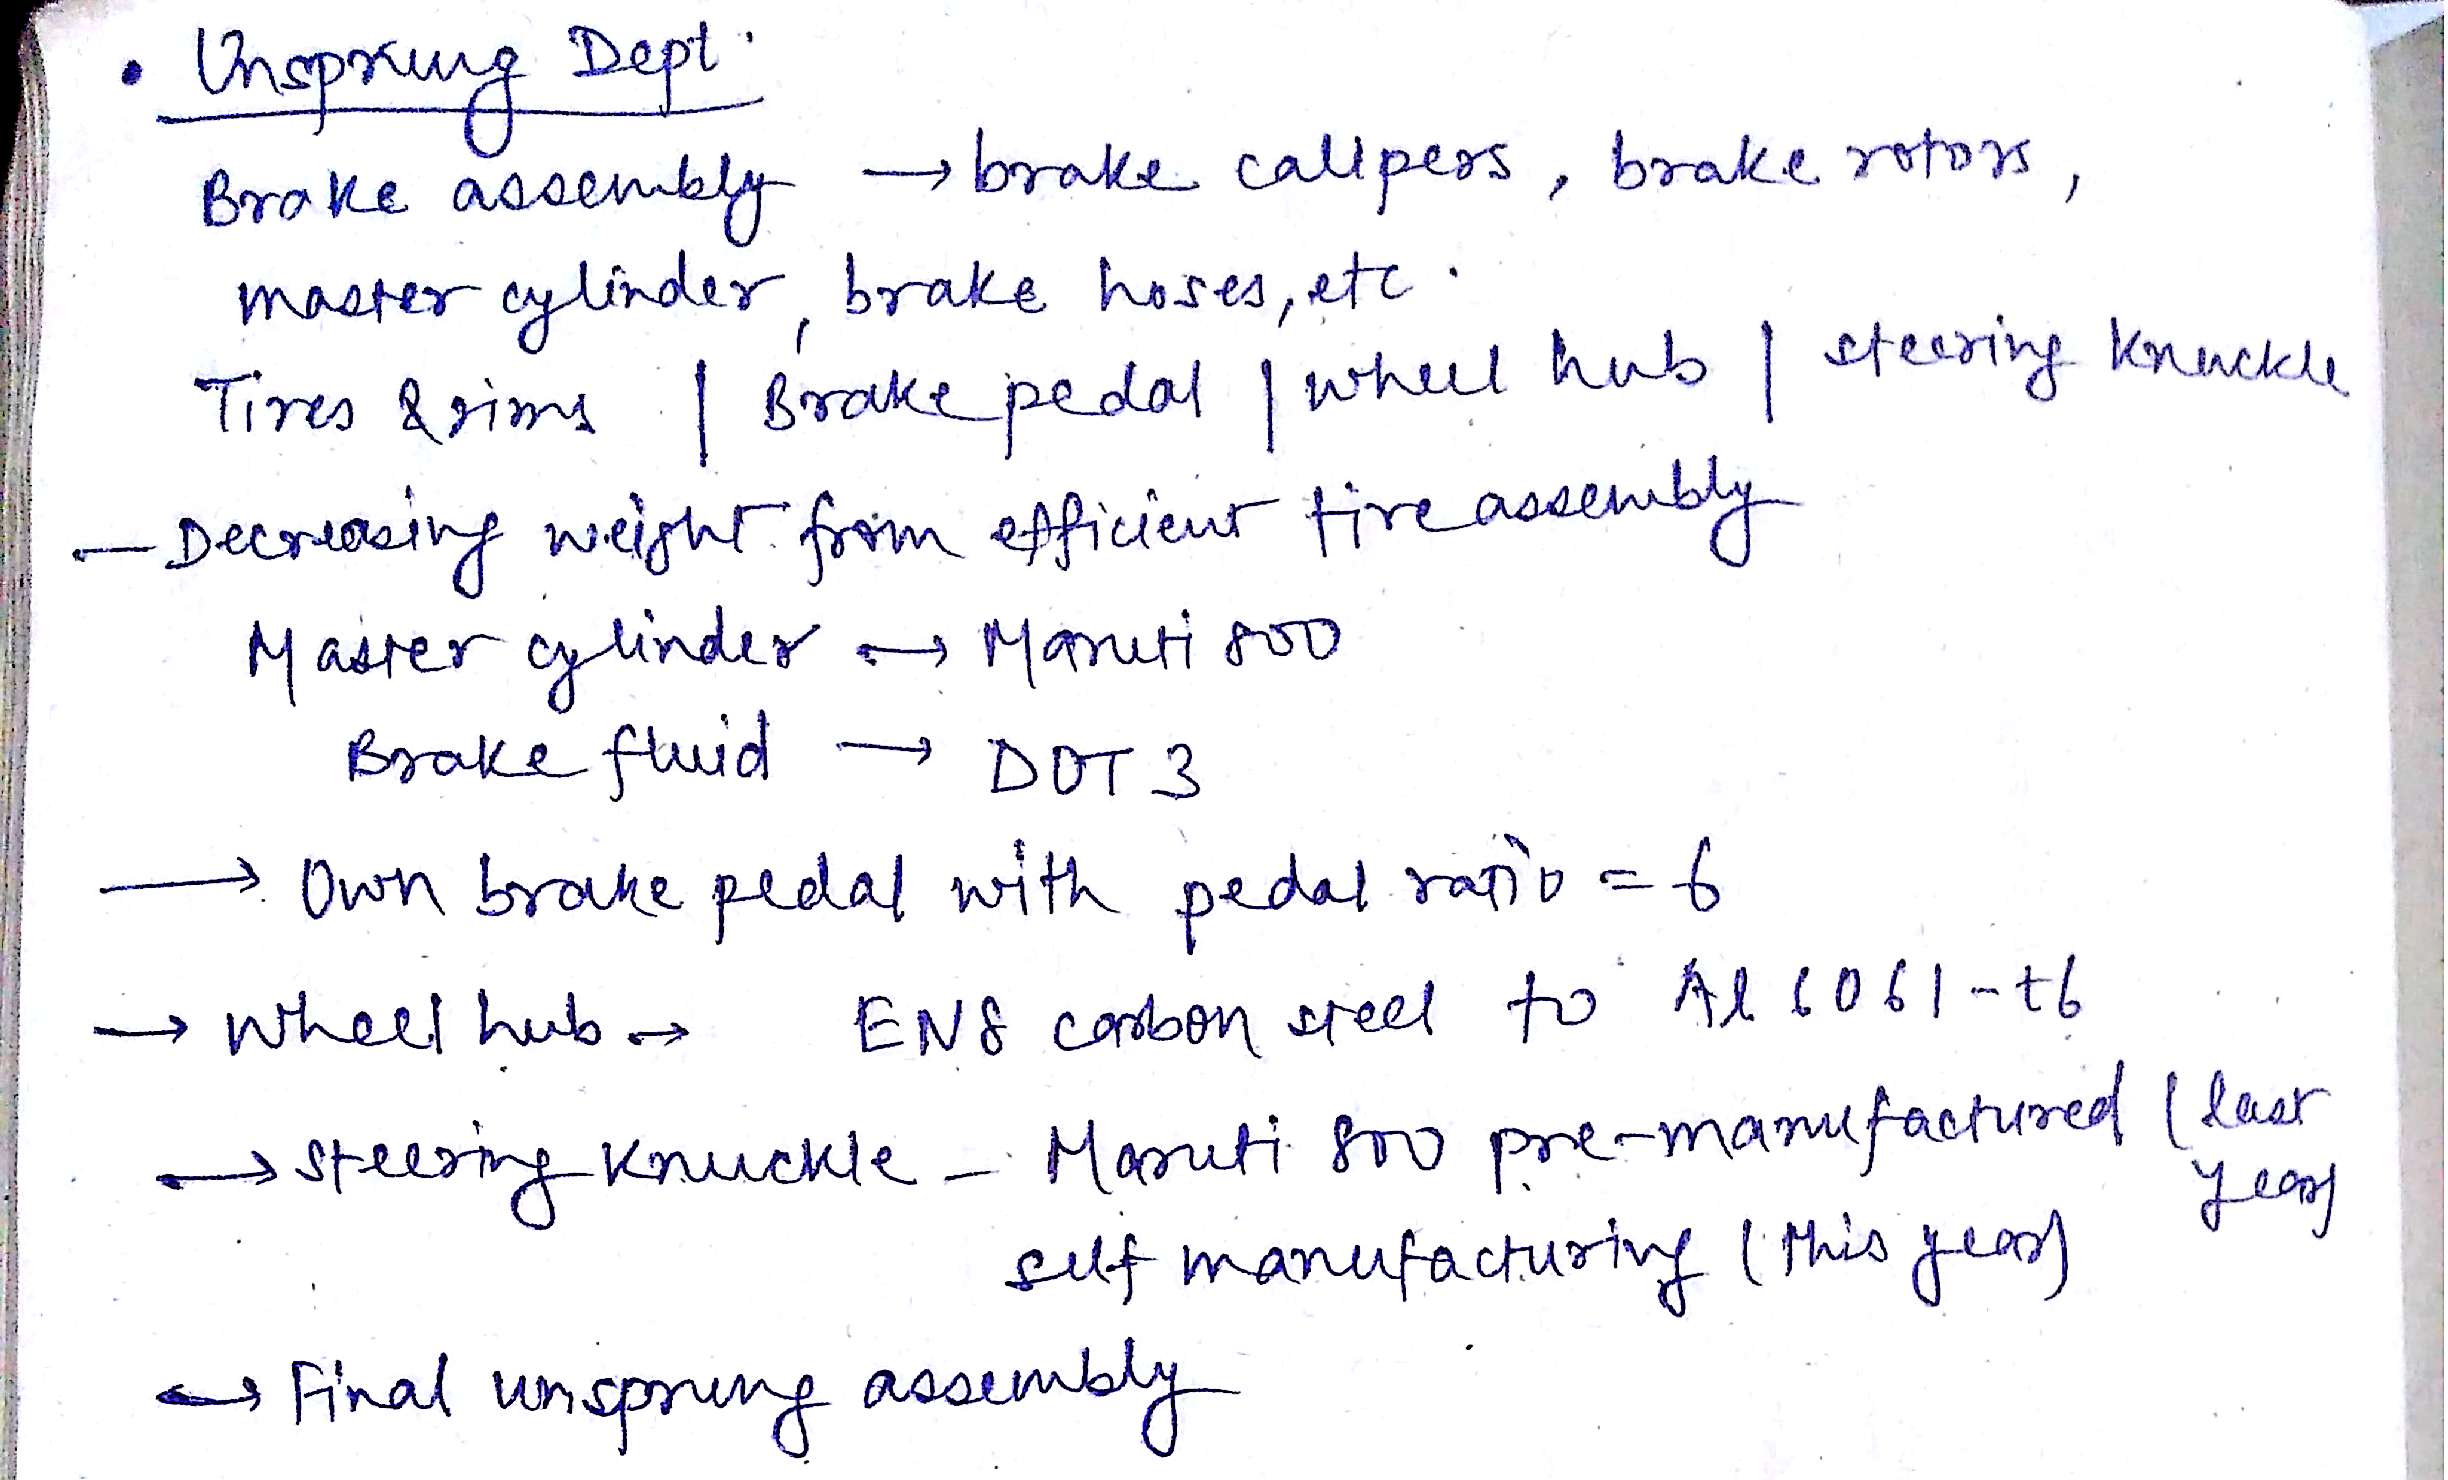 • Unsprung Dept.
Brake assembly → brake calipers, brake rotors,
master cylinder, brake hoses, etc.
Tires & rims | Brake pedal | wheel hub | steering knuckle
— Decreasing weight from efficient tire assembly
Master cylinder → Maruti 800
Brake fluid → DOT 3
→ Own brake pedal with pedal ratio = 6
→ Wheel hub → EN8 carbon steel to Al 6061-t6
→ Steering knuckle – Maruti 800 pre-manufactured (last
year)
self manufacturing (this year)
→ Final unsprung assembly